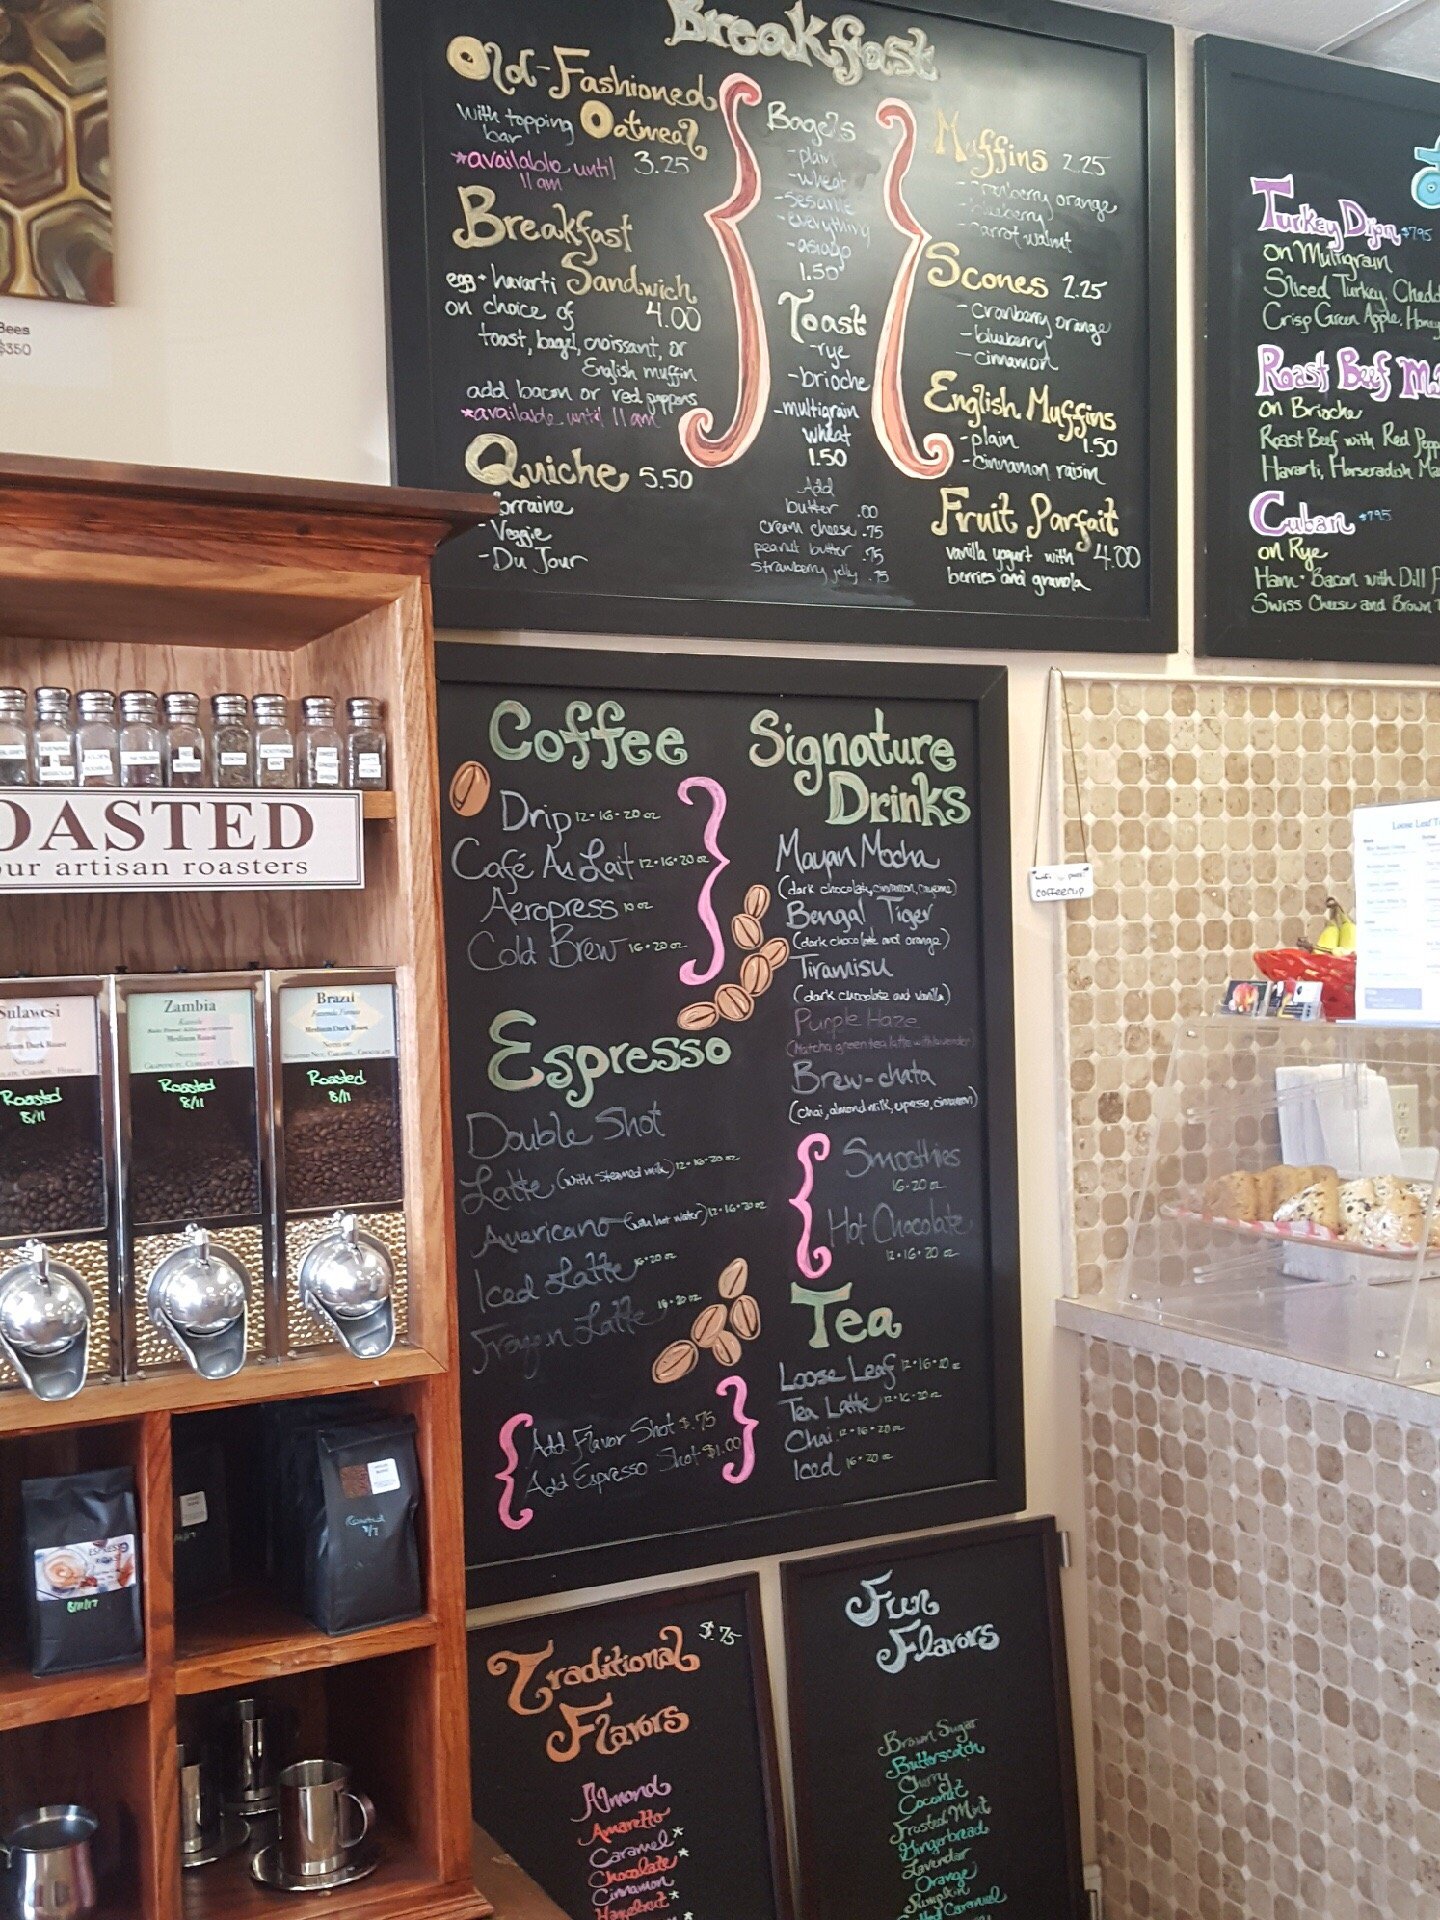 Breakfast
Old-Fashioned
Oatmeal
with topping
bar
*available until
11am
3.25
Breakfast
Sandwich
egg + havarti
on choice of
4.00
toast, bagel, croissant, or
English muffin
add bacon or red peppers
*available until 11am
Quiche 5.50
Lorraine
-Veggie
-Du Jour
Bagels
-plain
-wheat
-sesame
-everything
-asiago
1.50
Toast
-rye
-brioche
-multigrain
wheat
1.50
Add
butter .00
cream cheese .75
peanut butter .75
strawberry jelly .75
Muffins 2.25
-cranberry orange
-blueberry
-carrot walnut
Scones 2.25
-cranberry orange
-blueberry
-cinnamon
English Muffins
-plain 1.50
-cinnamon raisin
Fruit Parfait
vanilla yogurt with 4.00
berries and granola
Turkey Dijon $7.95
on Multigrain
Sliced Turkey, Chedd
Crisp Green Apple, Honey
Roast Beef
on Brioche
Roast Beef with Red Pepp
Havarti, Horseradish Ma
Cuban $7.95
on Rye
Ham + Bacon with Dill P
Swiss Cheese and Brown
Bees
$350
OASTED
our artisan roasters
Sulawesi
Medium Dark Roast
Roasted
8/11
Zambia
Medium Roast
Roasted
8/11
Brazil
Medium Dark Roast
Roasted
8/11
ESPRESSO
8/11/17
Roasted
Coffee
Drip 12-16-20 oz
Café Au Lait 12-16-20 oz
Aeropress 10 oz
Cold Brew 16-20 oz
Espresso
Double Shot
Latte (with steamed milk) 12-16-20 oz
Americano (with hot water) 12-16-20 oz
Iced Latte 16-20 oz
Frozen Latte 16-20 oz
Add Flavor Shot $.75
Add Espresso Shot $1.00
Signature
Drinks
Mayan Mocha
(dark chocolate, cinnamon, cayenne)
Bengal Tiger
(dark chocolate and orange)
Tiramisu
(dark chocolate and vanilla)
Purple Haze
(Matcha green tea latte with lavender)
Brew-chata
(chai, almond milk, espresso, cinnamon)
Smoothies
16-20 oz
Hot Chocolate
12-16-20 oz
Tea
Loose Leaf 12-16-20 oz
Tea Latte 12-16-20 oz
Chai 12-16-20 oz
Iced 16-20 oz
coffeecup
Loose Leaf T
Traditional $.75
Flavors
Almond
Amaretto
Caramel*
Chocolate*
Cinnamon
Hazelnut*
Fun
Flavors
Brown Sugar
Butterscotch
Cherry
Coconut
Frosted Mint
Gingerbread
Lavender
Orange
Pumpkin
Salted Caramel